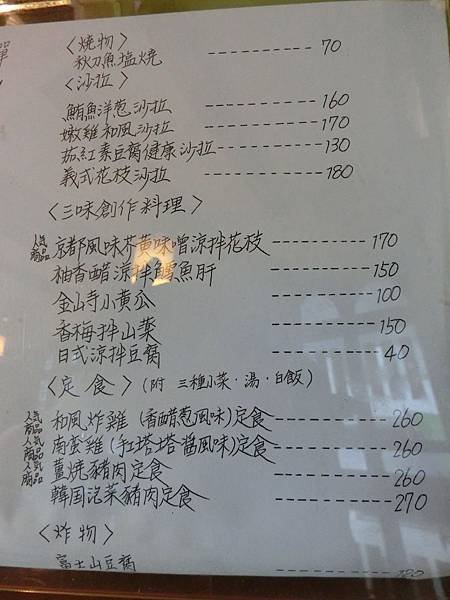 單
〈燒物〉
秋刀魚塩燒 70
〈沙拉〉
鮪魚洋蔥沙拉 160
嫩雞和風沙拉 170
茄紅素豆腐健康沙拉 130
義式花枝沙拉 180
〈三味創作料理〉
人気商品 京都風味芥黃味噌涼拌花枝 170
柚香醋涼拌鱈魚肝 150
金山寺小黃瓜 100
香梅拌山藥 150
日式涼拌豆腐 40
〈定食〉(附 三種小菜·湯·白飯)
人気商品 和風炸雞 (香醋蔥風味)定食 260
人気商品 南蛮雞 (手工塔塔醬風味)定食 260
人気商品 薑燒豬肉定食 260
韓国泡菜豬肉定食 270
〈炸物〉
富士山豆腐